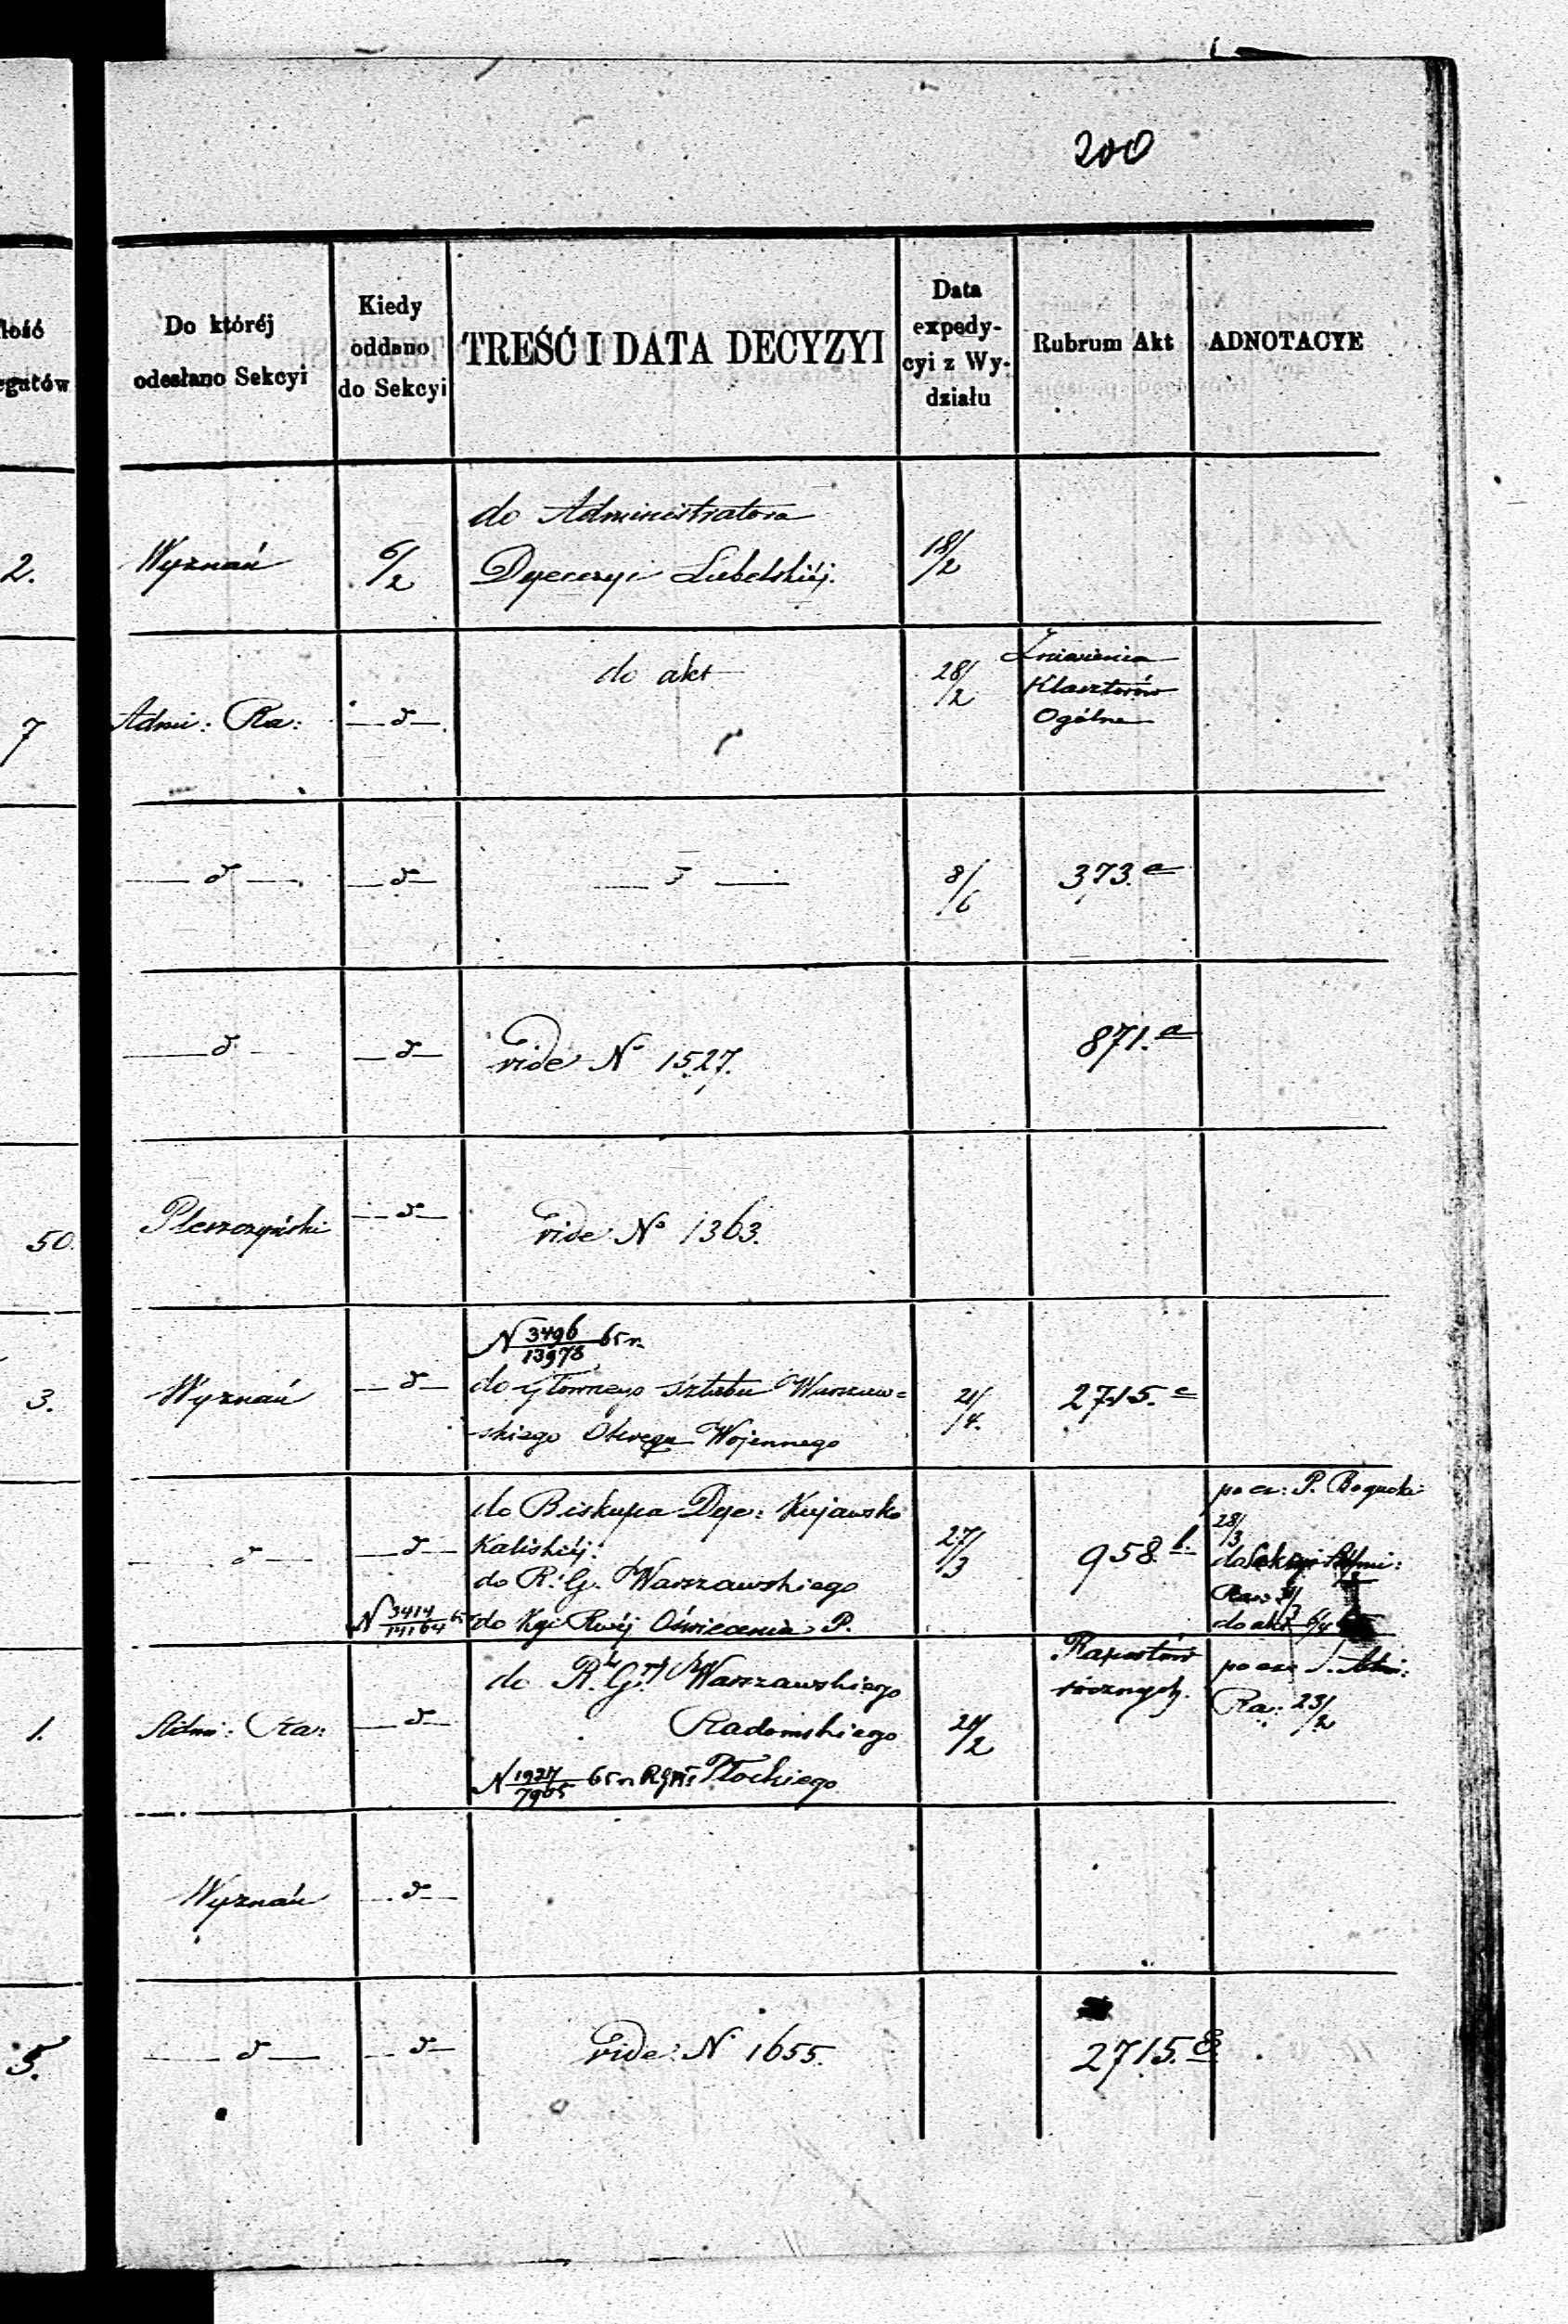 200
Ilość
Do któréj
odesłano Sekcyi
Kiedy
oddano
do Sekcyi
TREŚĆ I DATA DECYZYI
Data
expedy-
cyi z Wy-
działu
Rubrum Akt
ADNOTACYE
2.
Wyznań
6/2
do Administratora
Dyecezyi Lubelskiéj.
18/2
7
Admi: Ra:
— d —
do akt
28/2
Zniesienia
Klasztorów
Ogólne
— d —
— d —
— d —
8/6
373.
— d —
— d —
vide N° 1527.
871. a
50.
Pleszczyński
— d —
vide N° 1363.
3.
Wyznań
— d —
N 3496/13978 65 r.
do głównego sztabu Warszaw=
skiego Okręgu Wojennego
21/4.
2715.
— d —
— d —
N 3414/14164 65
do Biskupa Dye: Kujawsko
Kaliskiéj.
do R. G. Warszawskiego
do Kyi Rwéj Oświecenia P.
27/3
958. b.
po cz: P. Bogucki
28/3
do Sekcyi Admi:
do akt 6/4
1.
Admi: Ra:
— d —
do R. G. Warszawskiego
Radomskiego
N 1927/7965 65 r. Płockiego
21/2
Raportów
rocznych.
Ra: 23/2
Wyznań
— d —
5.
— d —
— d —
vide N° 1655.
2715.